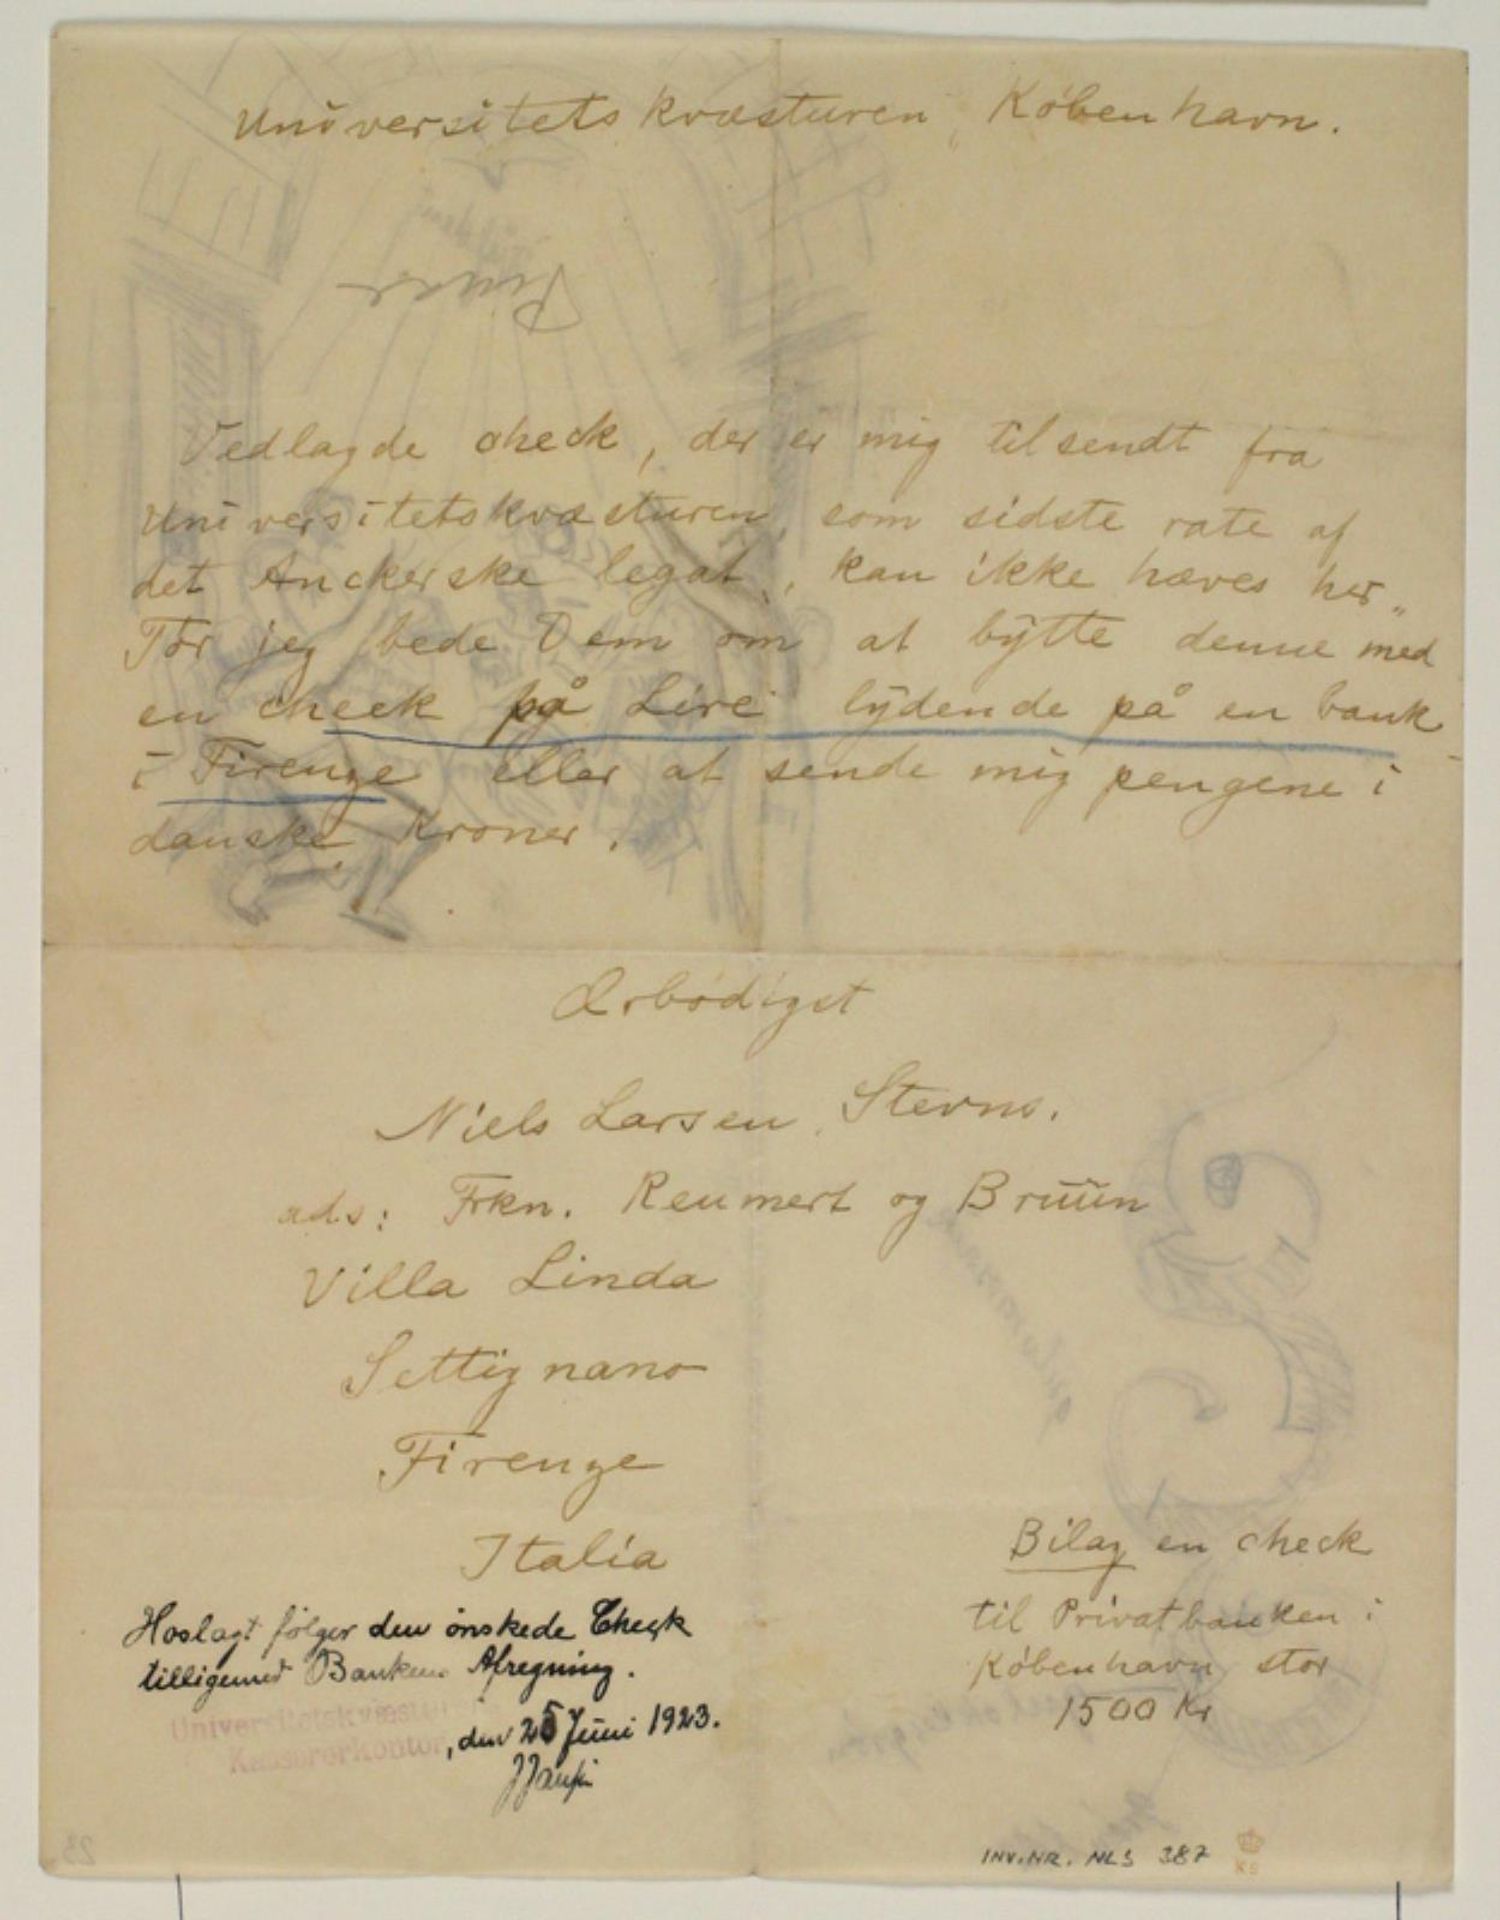 Universitetskvæsturen, København.
Vedlagde check, der er mig tilsendt fra
Universitetskvæsturen, som sidste rate af
det Anckerske legat, kan ikke hæves her.
Tør jeg bede Dem om at bytte denne med
en check på Lire lydende på en bank
i Firenze eller at sende mig pengene i
danske Kroner.
Ærbødigst
Niels Larsen Stevns.
ads: Frkn. Reumert og Bruun
Villa Linda
Settignano
Firenze
Italia
Bilag en check
til Privatbanken i
København stor
1500 Kr
Hoslagt følger den ønskede Check
tilligemed Bankens Afregning.
Universitetskvæsturen
Kassererkontor, den 25 Juni 1923.
INV.NR. NLS 387
KS
23